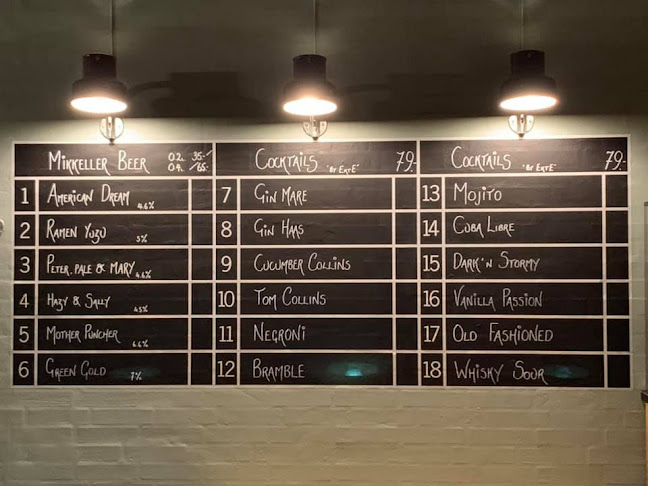 MIKKELLER BEER 02. 35.-
04. /65.-
1 AMERICAN DREAM 4.6%
2 RAMEN YUZU 5%
3 PETER, PALE & MARY 4.6%
4 HAZY & SALLY 4.5%
5 MOTHER PUNCHER 6.6%
6 GREEN GOLD 7%
COCKTAILS 79.-
7 GIN MARE
8 GIN HAAS
9 CUCUMBER COLLINS
10 TOM COLLINS
11 NEGRONI
12 BRAMBLE
COCKTAILS 79.-
13 MOJITO
14 CUBA LIBRE
15 DARK 'N STORMY
16 VANILLA PASSION
17 OLD FASHIONED
18 WHISKY SOUR